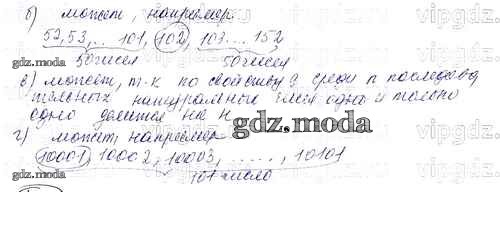 б) может, например
52,53,... 101, 102, 103... 152
50 чисел 50 чисел
в) может, т.к по свойству 9 среди n последова
тельных натуральных чисел одно и только
одно делится на n
г) может, например
10001, 10002, 10003, ....., 10101
101 число
gdz.moda
gdz.moda
gdz.moda